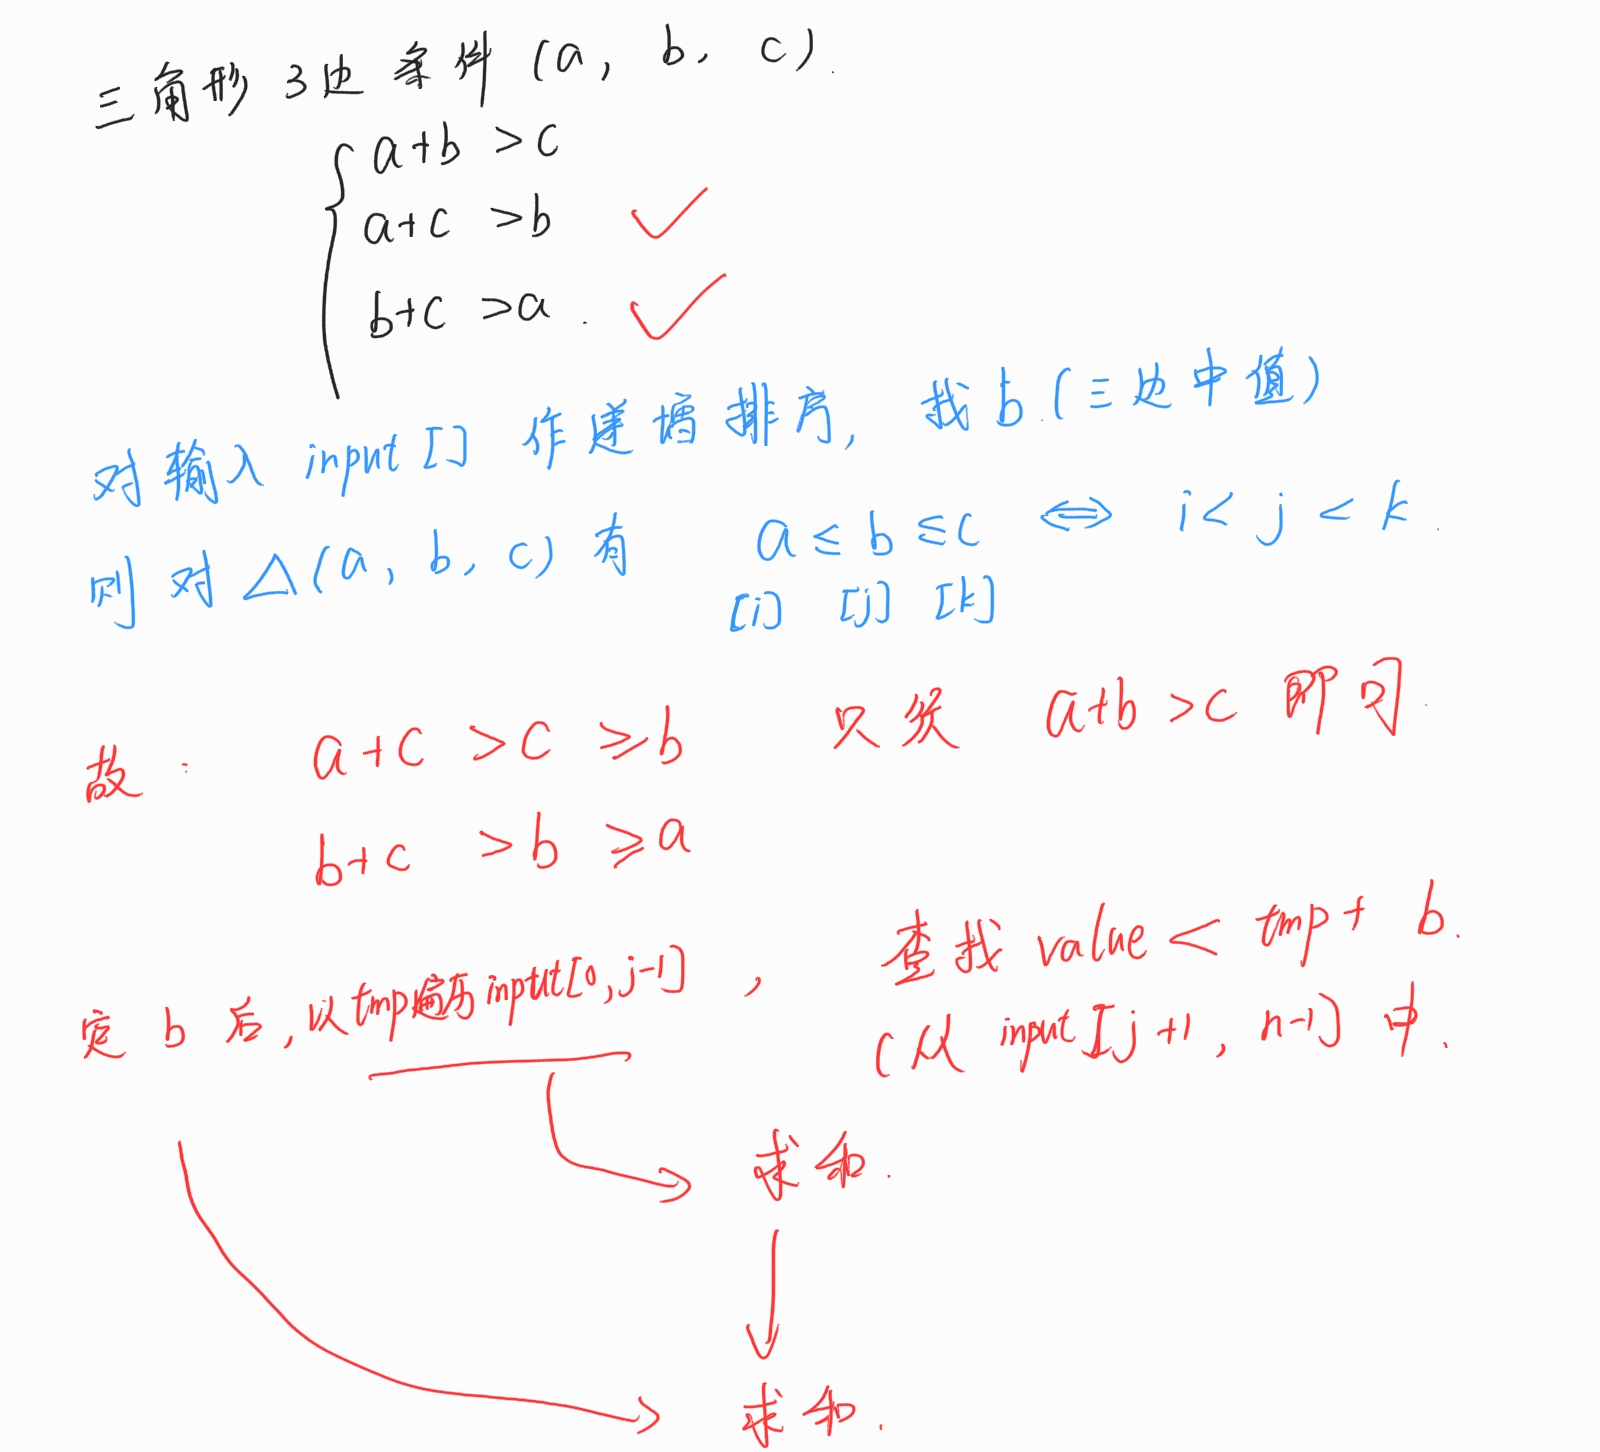 三角形3边条件(a, b, c).
a+b >c
a+c >b
b+c >a.
对输入 input[] 作递增排序, 找b.(三边中值)
则对△(a, b, c)有 a≤b≤c ⇔ i< j < k.
[i] [j] [k]
故: a+c >c ≥b 只须 a+b >c 即可.
b+c >b ≥a
定b后, 以tmp遍历input[0, j-1], 查找value < tmp+ b.
(从 input[j+1, n-1]中.
求和.
求和.